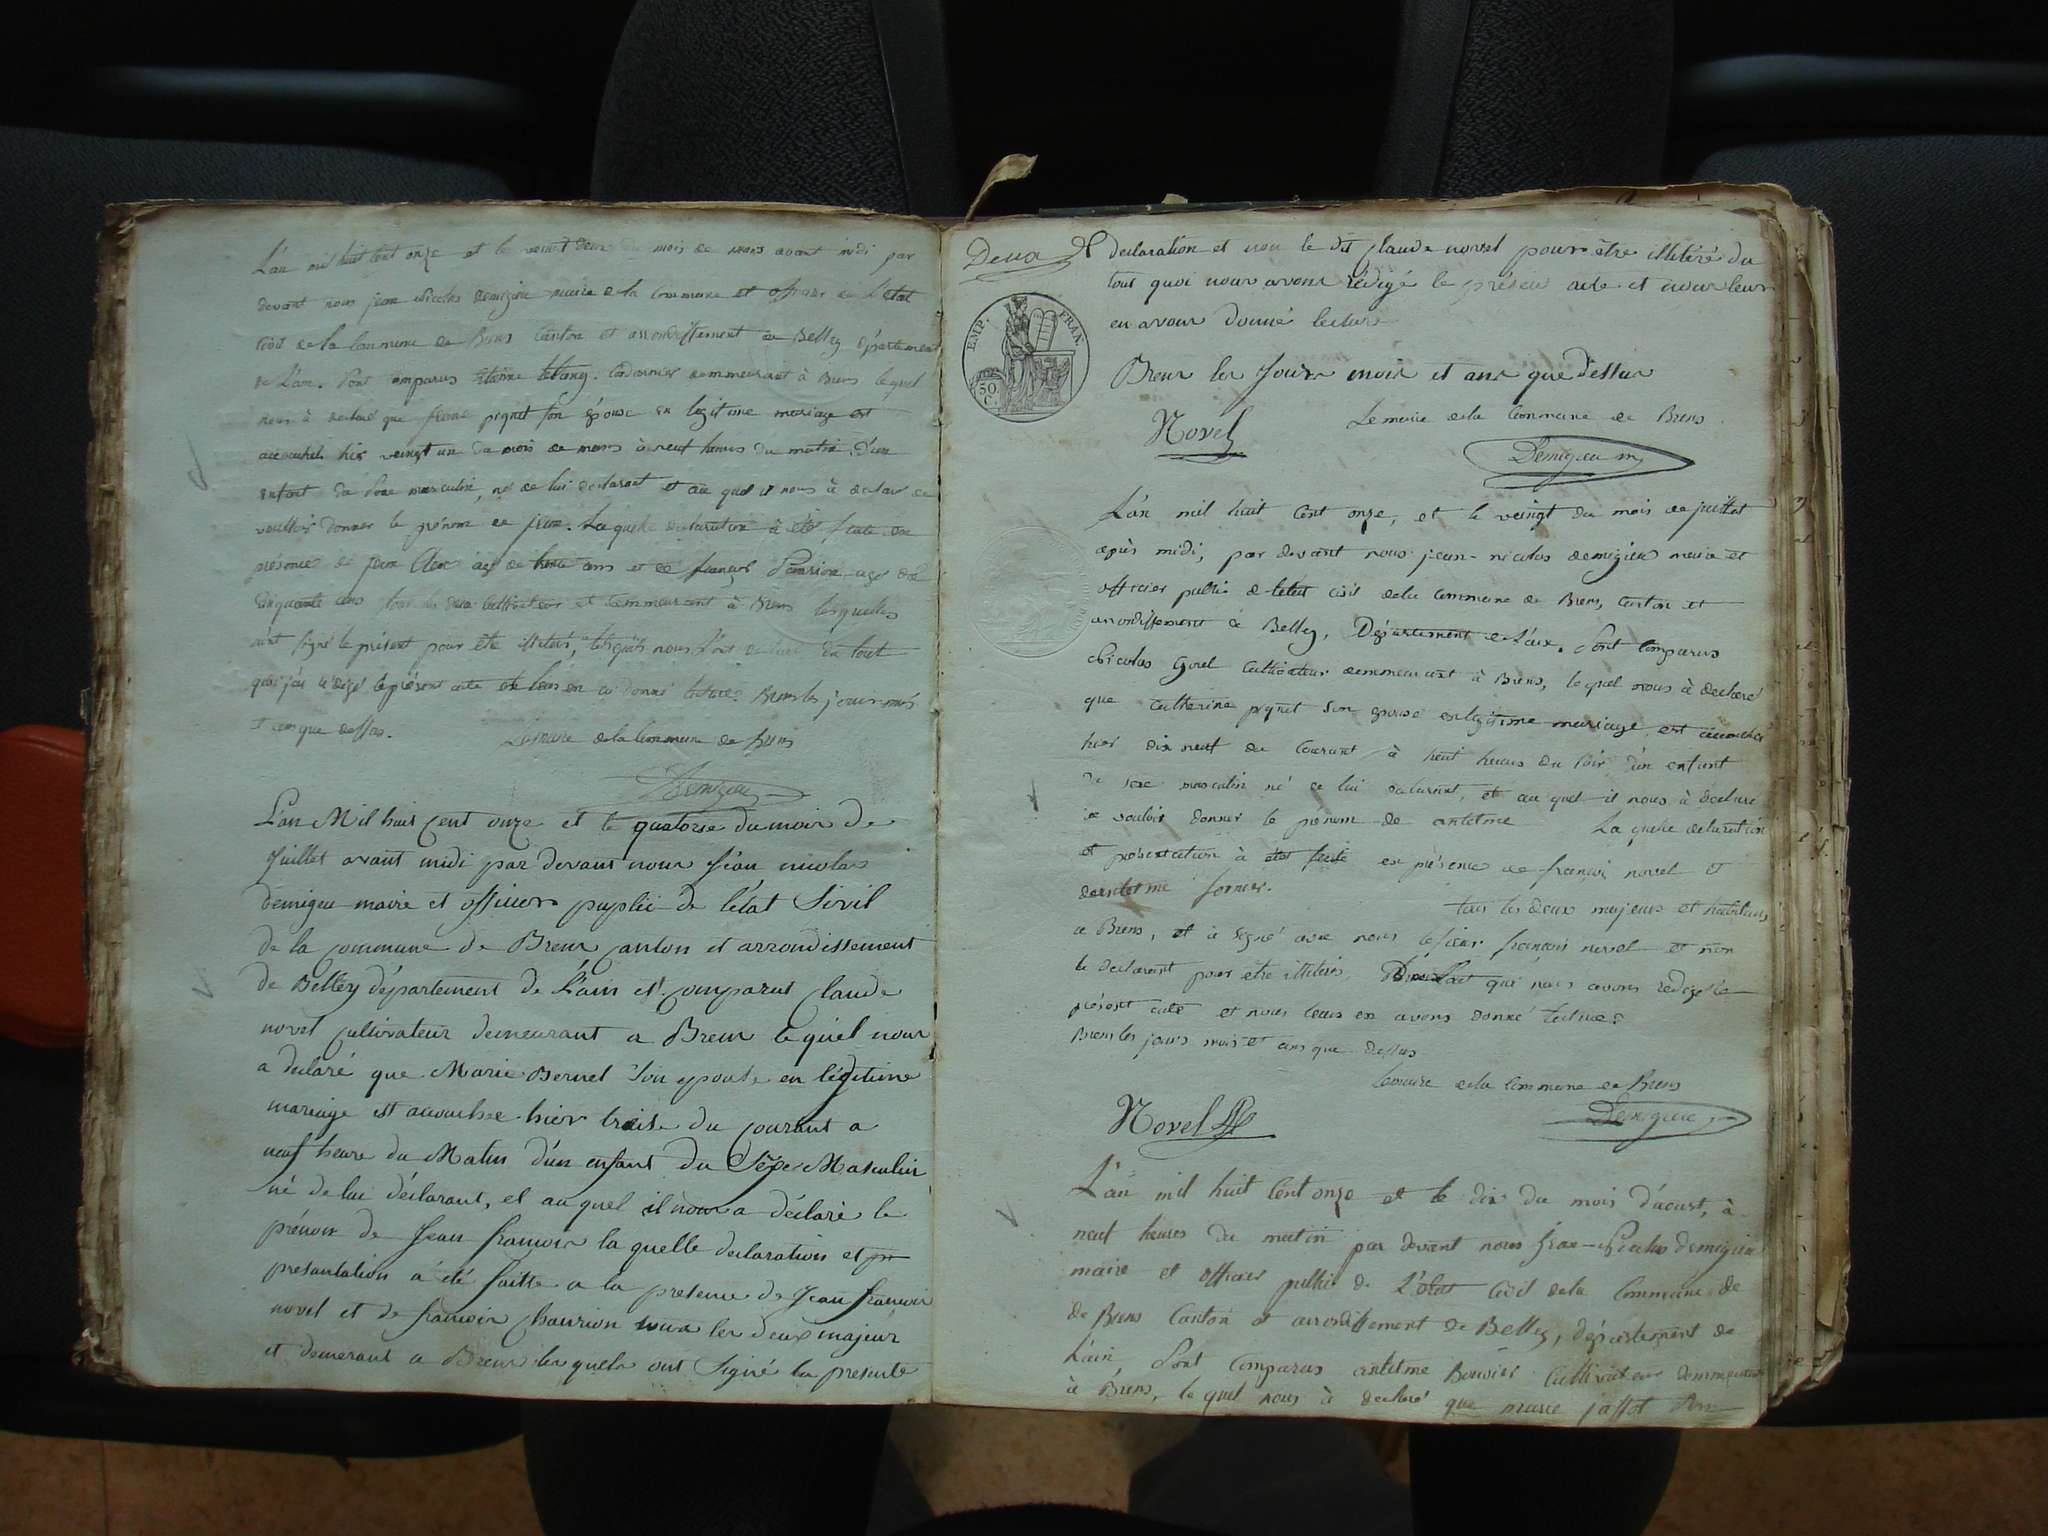 L'an mil huit cent onze et le veint deux du mois de mars avant midi par
devant nous jean nicolas demigieu maire de la commune et officier de l'etat
civil de la commune de Brens canton et arrondissement de Belley département
de L'ain. Sont comparus demmeurant à Brens lequel
nous à declaré que pignet son épouse en legitime mariage est
accouchée hier veingt un du mois de mars à neuf heures du matin d'un
enfant du sexe masculin, né de lui declarant et au quel il nous à declaré
voulloir donner le prénom de jean. La quelle declaration à été faite en
présence de jean agé de ans et de françois agé de
cinquante ans tous les deux cultivateur et demmeurant à Brens lesquelles
n'ont signé le présent pour être illiteré, du tout
quoi j'ai redigé le présent acte et leur en ai donné lecture. Brens les jour mois
et an que dessus. Le maire de la Commune de Brens
Demigieu
L'an Mil huit cent onze et le quatorze du mois de
Juillet avant midi par devant nous Jéan nicolas
demigieu maire et officier puplic de l'état Sivil
de la commune de Brens canton et arrondissement
de Belley département de L'ain est comparut claude
novel cultivateur demeurant a Brens le quel nous
a declaré que Marie Bernet son epouse en légitime
mariage est accouchée hier treise du courant a
neuf heure du Matin d'un enfant du Séxe Masculin
né de lui déclarant, et au quel il nous a déclaré le
prénom de Jean françois la quelle declaration et pr
presantation a été faitte a la presence de Jean françois
novel et de françois Chaurion tous les deux majeur
et demerant a Brens les quels ont Signé la presente
Deux
declaration et non le dit claude novel pour être illitéré du
tout quoi nous avons rédigé le présent acte et nous leur
en avons donné lecture
EMP. FRAN.
50 C.
Brens les Jours mois et ans que dessus
Le maire de la Commune de Brens
Novel
Demigieu m
L'an mil huit cent onze, et le veingt du mois de juillet
après midi, par devant nous jean-nicolas demigieu maire et
officier public de l'etat civil de la commune de Brens, canton et
arrondissement de Belley, Département de L'ain. Sont comparus
nicolas Gorel cultivateur demmeurant à Brens, lequel nous à declaré
que catherine pignet son epouse en legitime mariage est accouché
hier dix neuf du courant à huit heures du soir d'un enfant
du sexe masculin né de lui declarant, et au quel il nous à declaré
vouloir donner le prénom de antelme La quelle declaration
et présentation à été faite en présence de françois novel et
d'antelme fornier.
tous les deux majeurs et habitans
à Brens, et à signé avec nous le sieur françois novel et non
le declarant pour etre illiteré. Du tout quoi nous avons redigé le
présent acte et nous leurs en avons donné lecture
Brens les jours mois et ans que dessus
le maire de la Commune de Brens
Novel
Demigieu
L'an mil huit cent onze et le dix du mois d'aoust, à
neuf heures du matin par devant nous jean-nicolas demigieu
maire et officier public de L'état civil de la Commune de
de Brens Canton et arrondissement de Belley, département de
L'ain, Sont comparus antelme Bouvier cultivateur demmeurant
à Brens, le quel nous à declaré que marie jaffet son